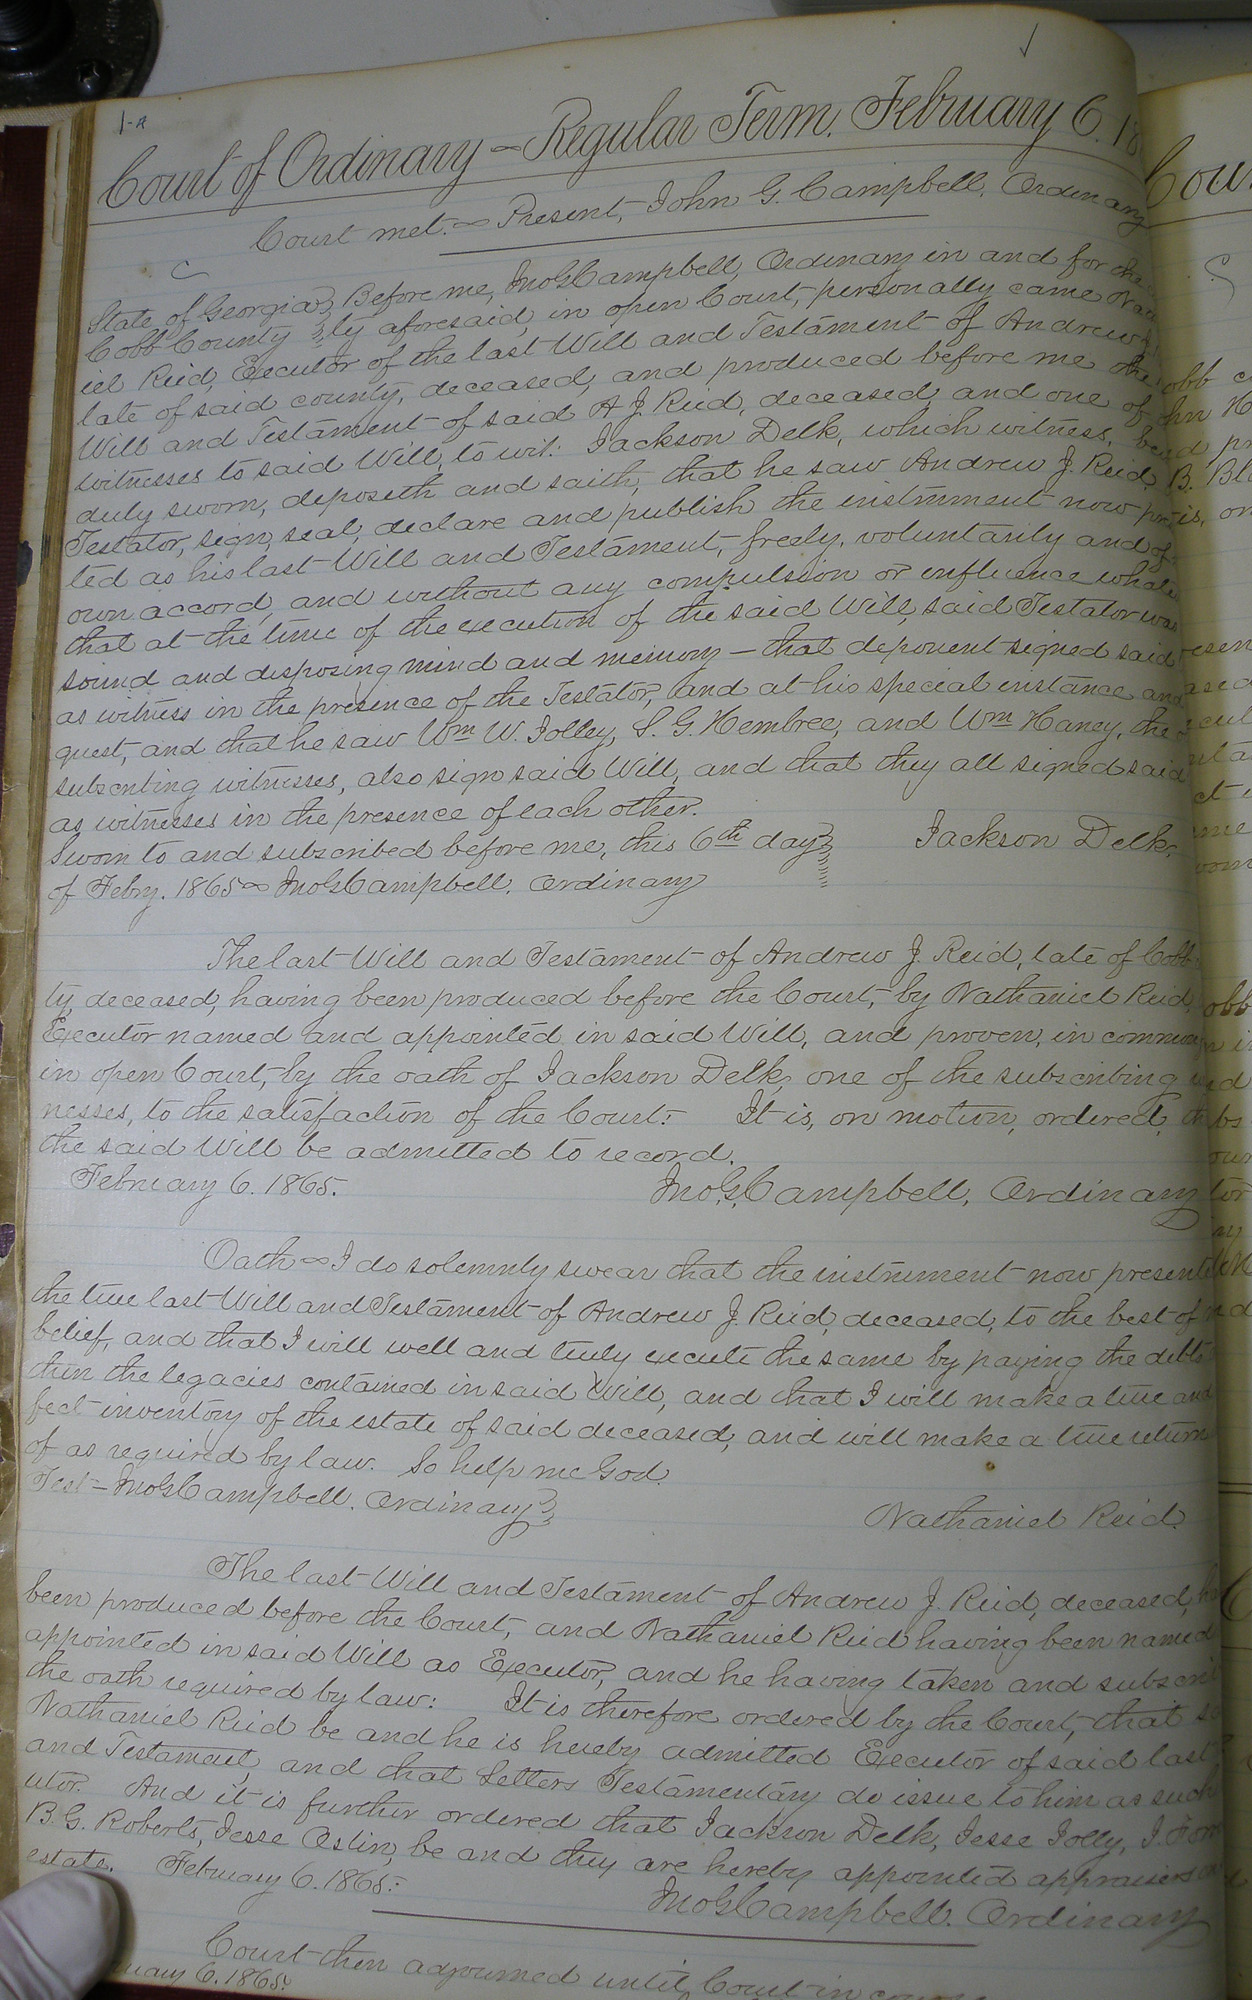 1-a
Court of Ordinary – Regular Term. February 6. 18
Court met. – Present, John G. Campbell, Ordinary
State of Georgia, Before me, Jno G Campbell, Ordinary in and for the
Cobb County ty aforesaid, in open Court, personally came Nath
iel Reid, Executor of the last Will and Testament of Andrew J
late of said county, deceased, and produced before me the
Will and Testament of said A J. Reid, deceased, and one of
witnesses to said Will, to wit: Jackson Delk, which witness, be
duly sworn, deposeth and saith, that he saw Andrew J. Reid,
Testator, sign, seal, declare and publish the instrument now pre
ted as his last Will and Testament, freely, voluntarily and of
own accord, and without any compulsion or influence what
that at the time of the execution of the said Will, said Testator was
sound and disposing mind and memory – that deponent signed said
as witness in the presence of the Testator, and at his special instance and
quest, and that he saw Wm W. Jolley, S. G. Hembree, and Wm Haney, the
subscribing witnesses, also sign said Will, and that they all signed said
as witnesses in the presence of each other.
Sworn to and subscribed before me, this 6th day Jackson Delk,
of Febry. 1865 – Jno G Campbell. Ordinary
The last Will and Testament of Andrew J. Reid, late of Cobb
ty, deceased, having been produced before the Court, by Nathaniel Reid,
Executor named and appointed in said Will, and proven, in common
in open Court, by the oath of Jackson Delk, one of the subscribing
nesses, to the satisfaction of the Court: It is, on motion, ordered, th
the said Will be admitted to record.
February 6. 1865. Jno. G. Campbell, Ordinary
Oath – I do solemnly swear that the instrument now present
the true last Will and Testament of Andrew J. Reid, deceased, to the best of
belief, and that I will well and truly execute the same by paying the debts
then the legacies contained in said Will, and that I will make a true and
fect inventory of the estate of said deceased, and will make a true return
of as required by law. So help me God.
Test – Jno G Campbell. Ordinary
Nathaniel Reid.
The last Will and Testament of Andrew J. Reid, deceased, ha
been produced before the Court, and Nathaniel Reid having been named
appointed in said Will as Executor, and he having taken and subscri
the oath required by law: It is therefore ordered by the Court, that
Nathaniel Reid be and he is hereby admitted Executor of said last
and Testament, and that Letters Testamentary do issue to him as such
utor. And it is further ordered that Jackson Delk, Jesse Jolly, J.
B. G. Roberts, Jesse Oslin, be and they are hereby appointed appraisers
estate. February 6. 1865: Jno G Campbell. Ordinary
Court then adjourned until Court in
uary 6. 1865.